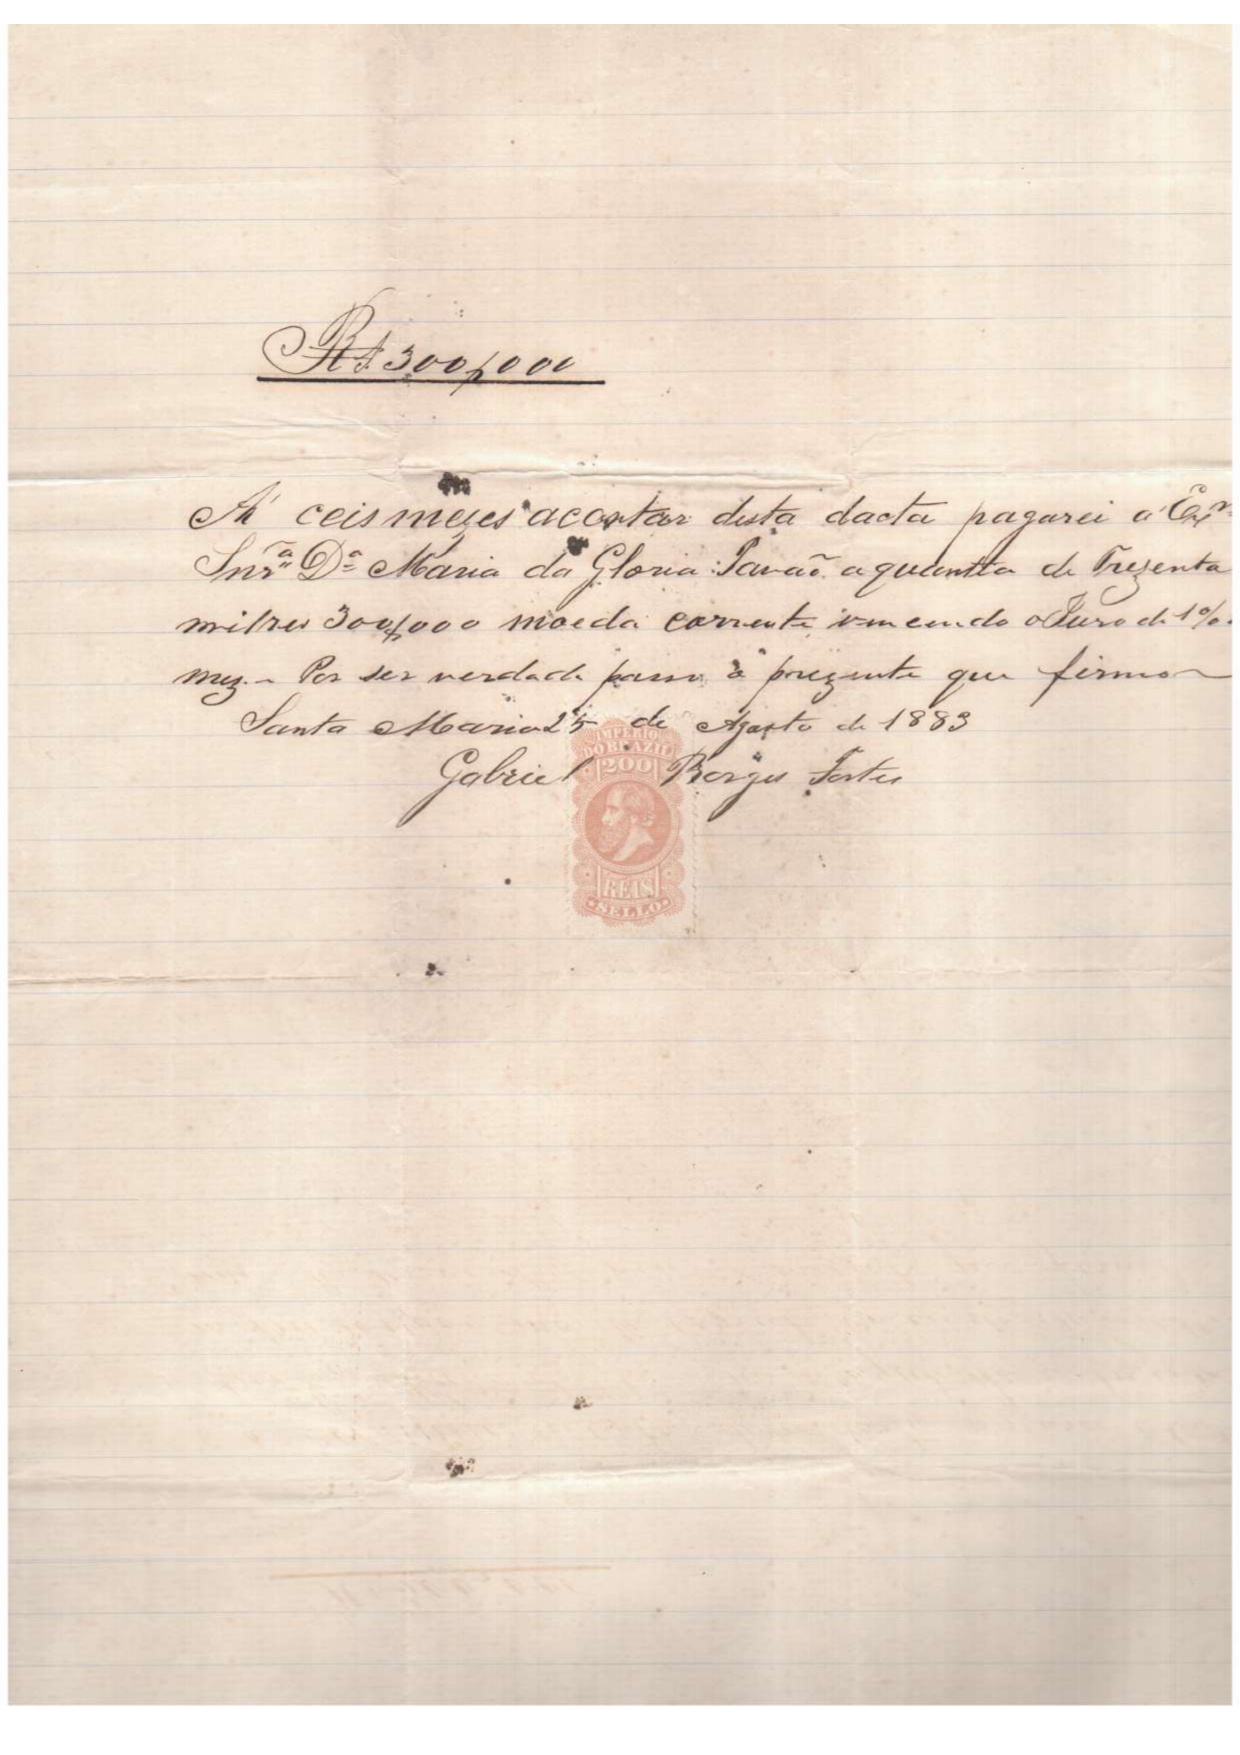 Rs 300$000
A' ceis mezes acontar desta dacta pagarei a Exmª
Snrª Dª Maria da Gloria Pavão aquantia de Trezenta
milreis 300$000 moeda corrente vencendo o Juro de 1%
mez. Por ser verdade passo o prezente que firmo
Santa Maria 25 de Agosto de 1883
Gabriel Borges Fortes
IMPERIO
DO BRAZIL
200
REIS
SELLO